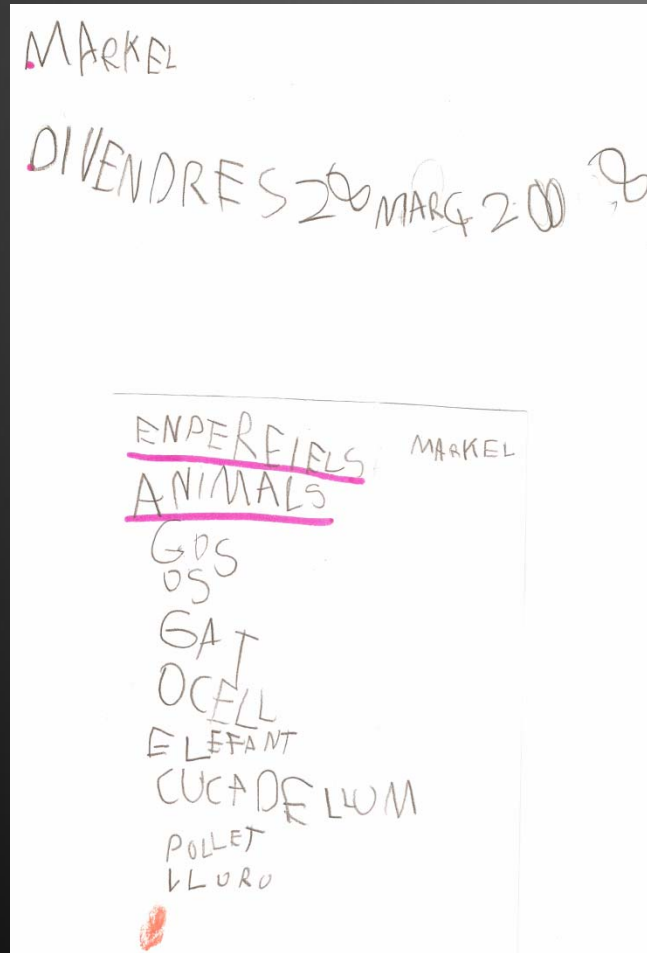 MARKEL
DIVENDRES 28 MARÇ 2008
ENPEREIELS MARKEL
ANIMALS
GOS
OS
GAT
OCELL
ELEFANT
CUCA DE LLUM
POLLET
LLORO